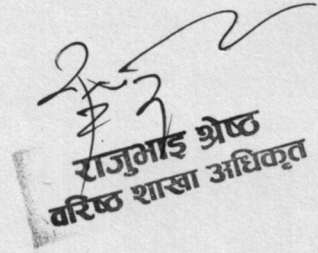 राजुभाइ श्रेष्ठ
वरिष्ठ शाखा अधिकृत